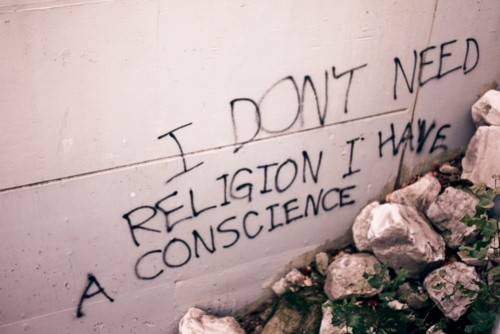 I DON'T NEED
RELIGION I HAVE
A CONSCIENCE